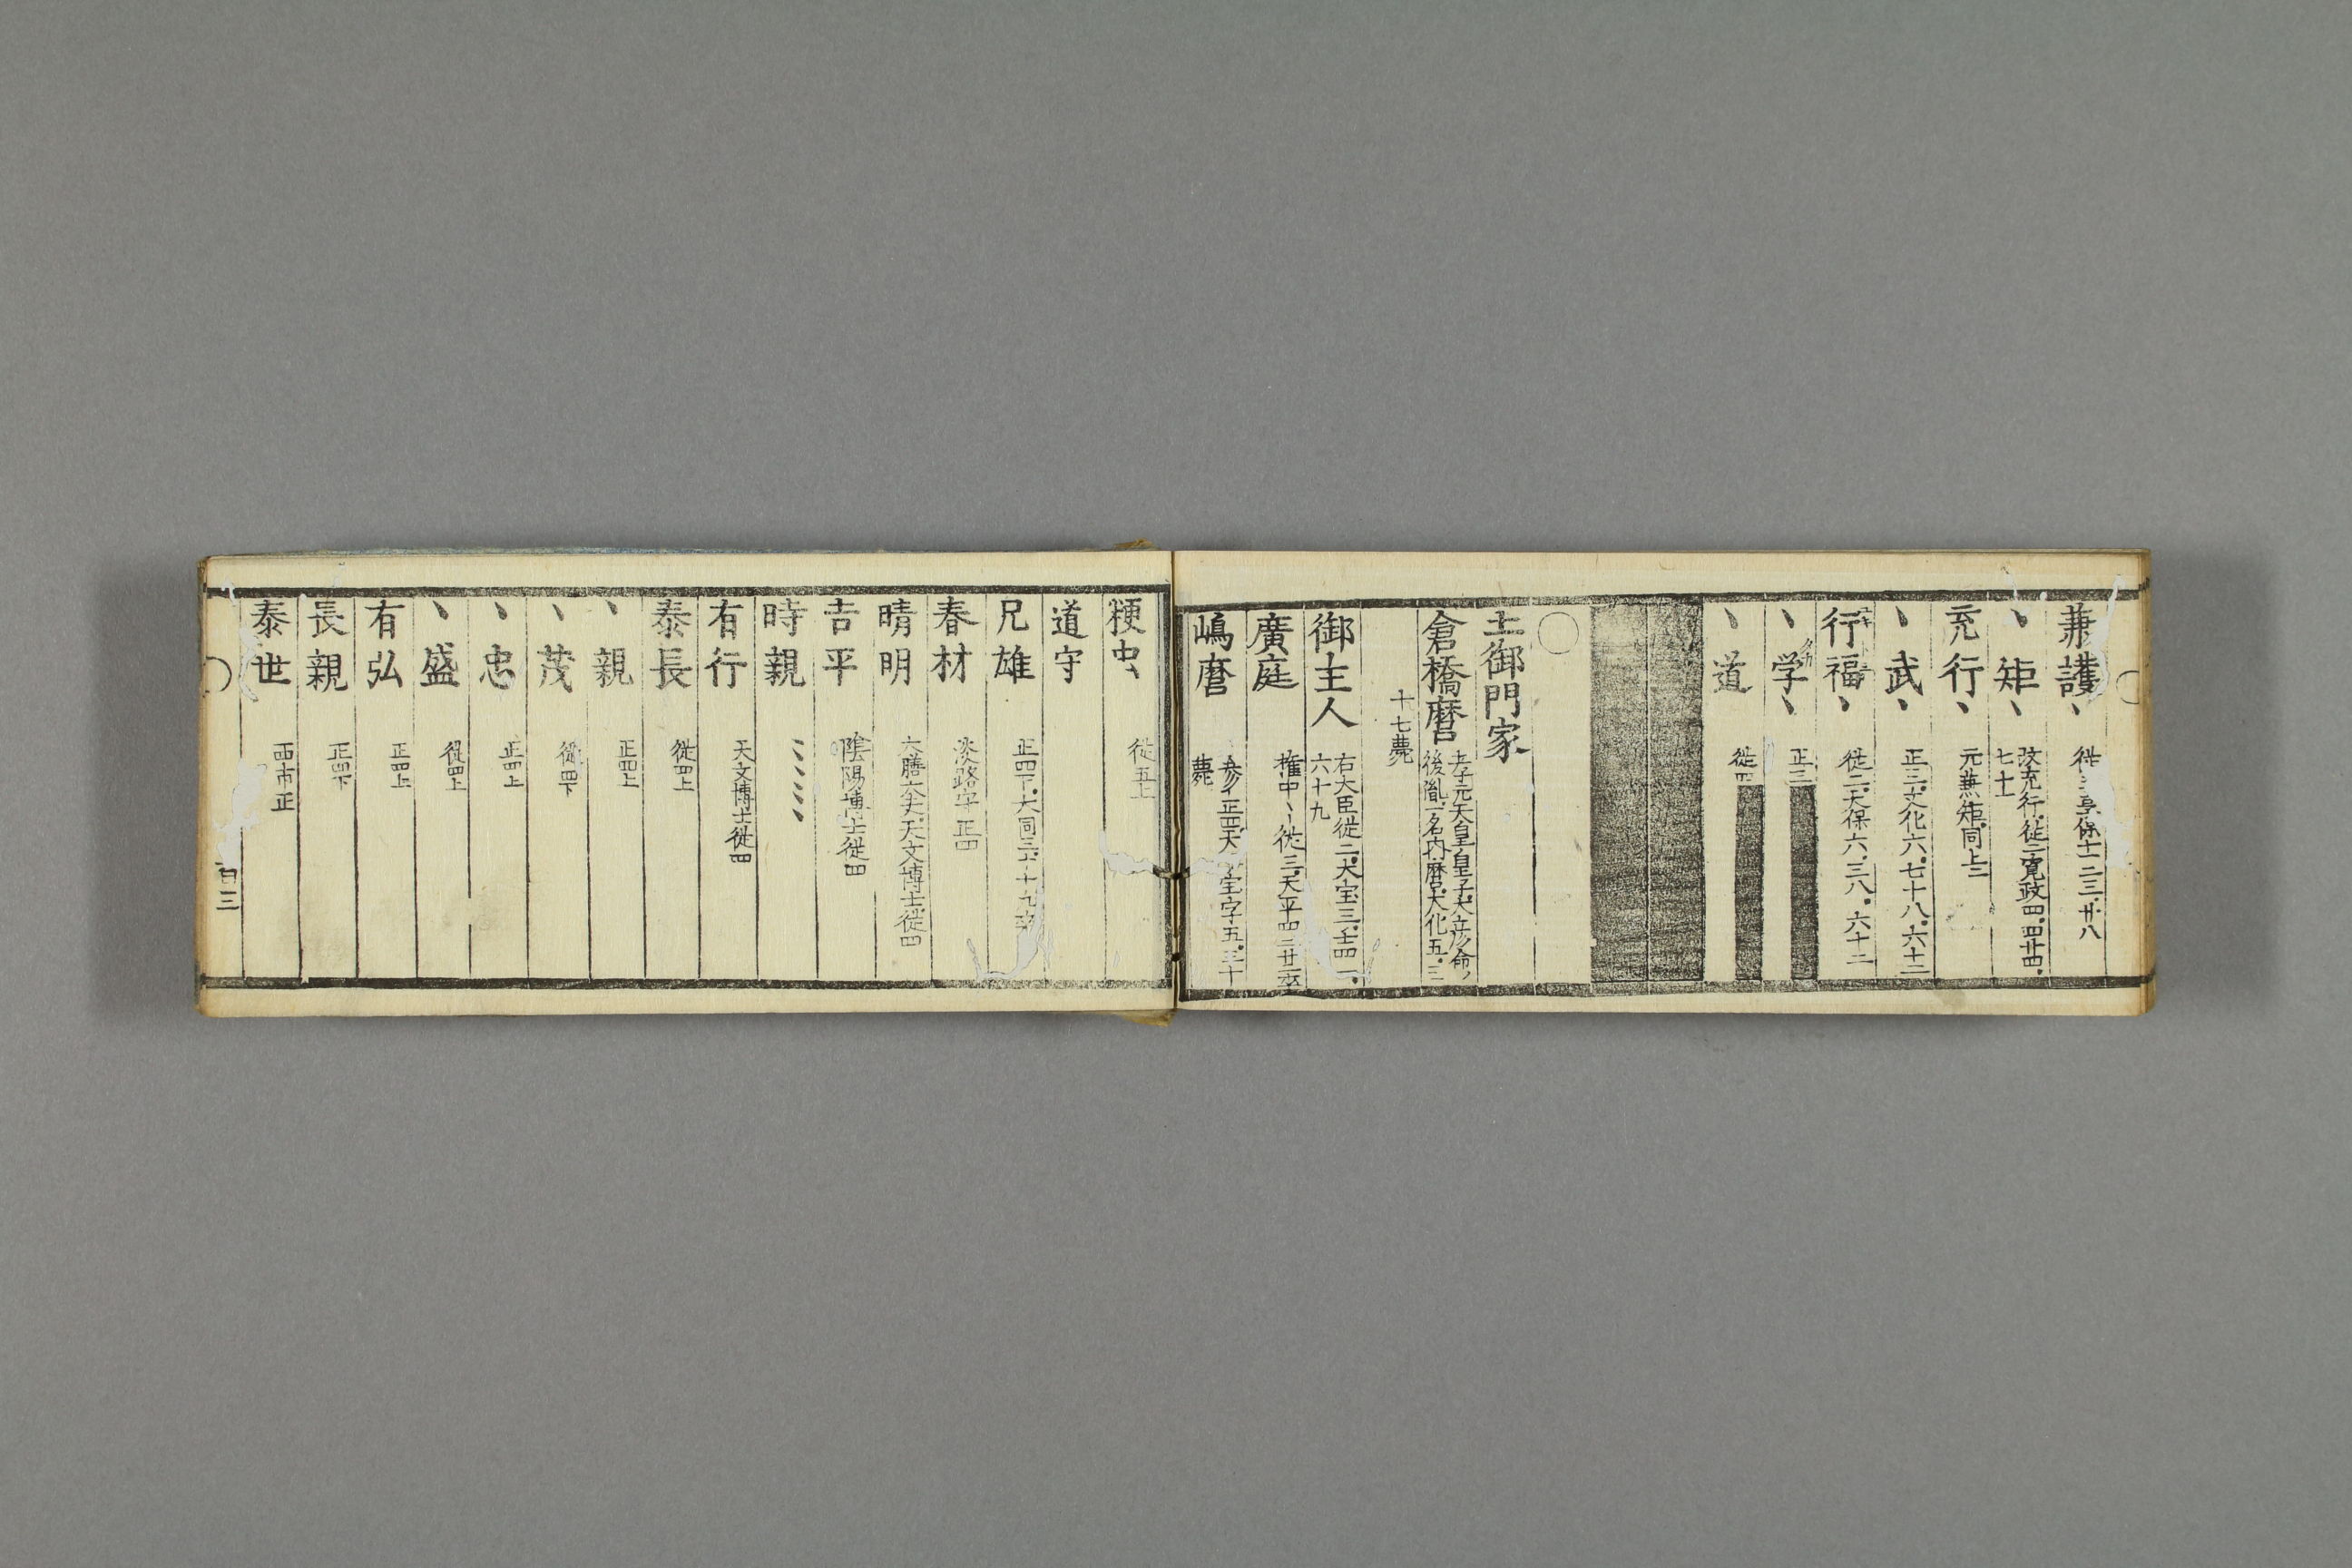 兼護、
、矩、 改充行、従二、寛政四、四廿四、
七十一
充行、 元兼矩、同上
、武、 正三、文化六、七十八、六十二
行福、 従二、天保六、三八、六十二
、学、 正三
、道 従四
〇
土御門家
倉橋麿 孝元天皇皇子大彦命ノ
後胤、一名内麿、大化五、三
十七薨
御主人 右大臣従二、大宝三、壬四一、
六十九
廣庭 権中、従三、天平四二廿二卒
嶋麿
薨
粳虫、 従五上
道守
兄雄
春材 淡路守正四
晴明 大膳大夫、天文博士従四
吉平 陰陽博士従四
時親 、、、、
有行 天文博士従四
泰長 従四上
、親 正四上
、茂 従四下
、忠 正四上
、盛 従四上
有弘 正四上
長親 正四下
泰世 西市正
〇 百三